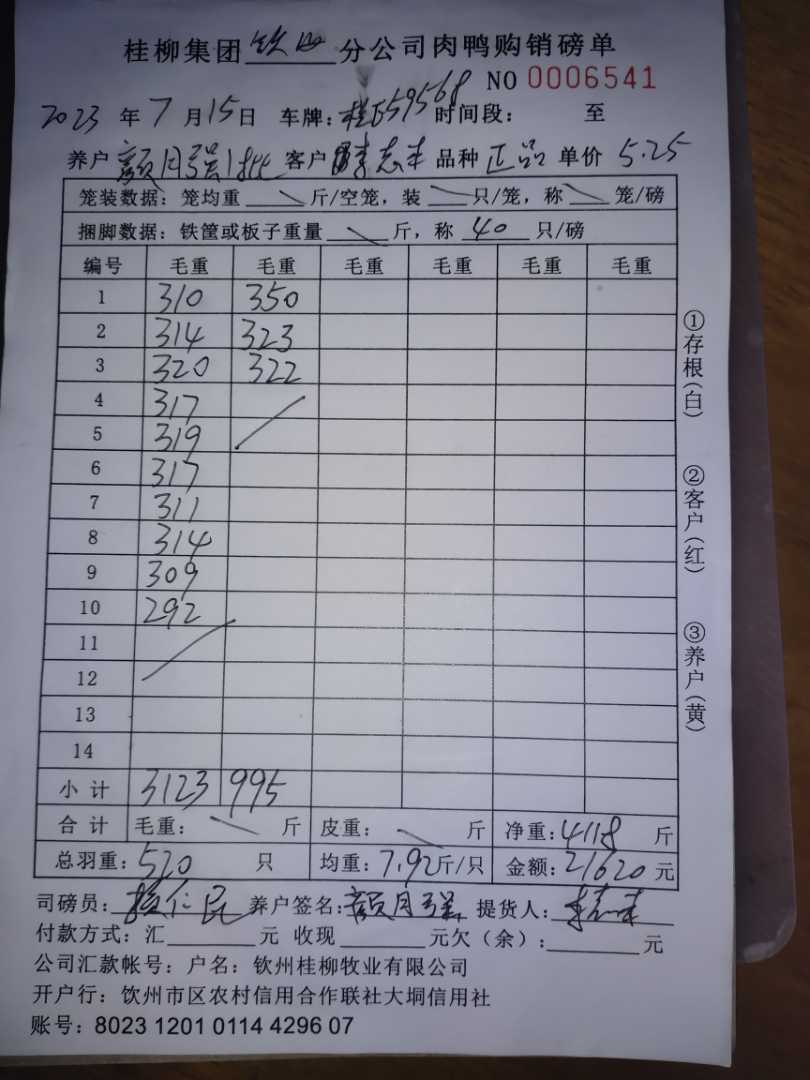 桂柳集团钦州分公司肉鸭购销磅单
NO 0006541
2023 年 7 月 15 日 车牌: 桂 59568 时间段: 至
养户 颜月强1批 客户 李志 品种 正品 单价 5.25
笼装数据: 笼均重 \ 斤/空笼, 装 \ 只/笼, 称 \ 笼/磅
捆脚数据: 铁筐或板子重量 \ 斤, 称 40 只/磅
编号 毛重 毛重 毛重 毛重 毛重 毛重
1 310 350
2 314 323
3 320 322
4 317
5 319
6 317
7 311
8 314
9 309
10 292
11
12
13
14
小计 3123 995
合计 毛重: \ 斤 皮重: \ 斤 净重: 4118 斤
总羽重: 520 只 均重: 7.92 斤/只 金额: 21620 元
司磅员: 仁民 养户签名: 颜月强 提货人: 李志
付款方式: 汇 元 收现 元欠(余): 元
公司汇款帐号: 户名: 钦州桂柳牧业有限公司
开户行: 饮州市区农村信用合作联社大垌信用社
账号: 8023 1201 0114 4296 07
①存根(白)
②客户(红)
③养户(黄)